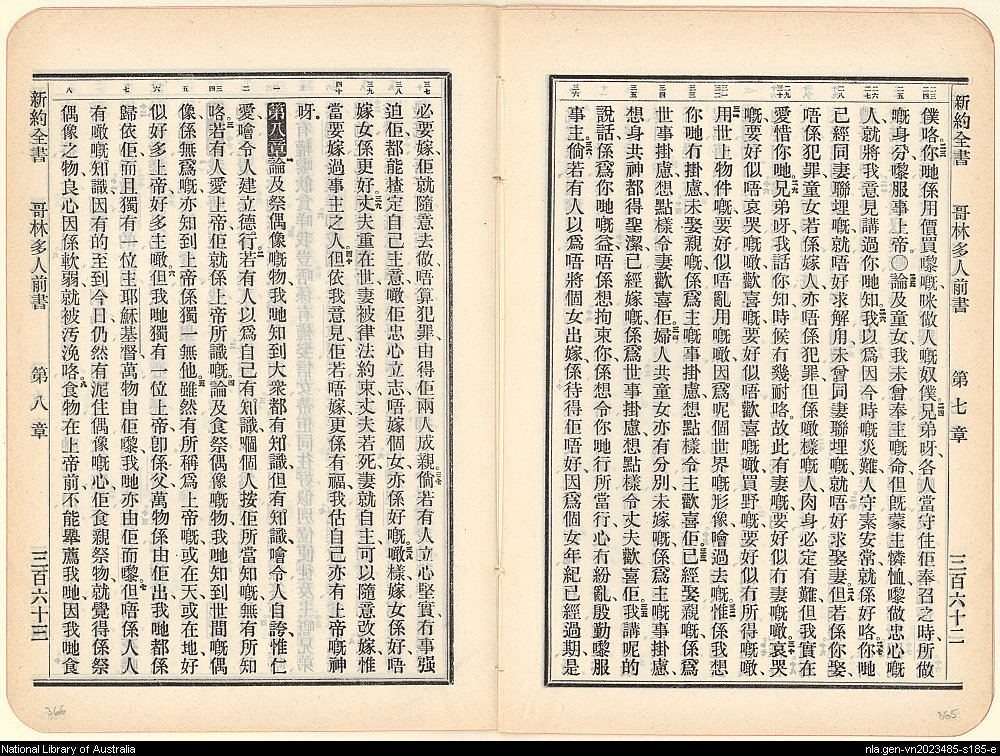 新約全書 哥林多人前書 第七章 三百六十二
僕咯、你哋係用價買嚟嘅、咪做人嘅奴僕。兄弟呀、各人當守住佢奉召之時、所做
嘅身分、嚟服事上帝。〇論及童女、我未曾奉主嘅命、但旣蒙主憐恤、嚟做忠心嘅
人、就將我意見講過你哋知、我以爲因今時嘅災難、人守素安常、就係好咯、你哋
已經同妻聯埋嘅、就唔好求解用、未曾同妻聯埋嘅、就唔好求娶妻、但若係你娶、
唔係犯罪、童女若係嫁人、亦唔係犯罪、但係噉樣嘅人、肉身必定有難、但我實在
愛惜你哋、兄弟呀、我話你知、時候有幾耐咯、故此有妻嘅、要好似冇妻嘅噉、哀哭
嘅、要好似唔哀哭嘅噉、歡喜嘅、要好似唔歡喜嘅噉、買野嘅、要好似冇所得嘅噉、
用世上物件嘅、要好似唔亂用嘅噉、因爲呢個世界嘅形像、噲過去嘅、惟係我想
你哋冇掛慮、未娶親嘅、係爲主嘅事掛慮、想點樣令主歡喜佢、已經娶親嘅、係爲
世事掛慮、想點樣令妻歡喜佢、婦人共童女亦有分別、未嫁嘅、係爲主嘅事掛慮、
想身共神都得聖潔、已經嫁嘅、係爲世事掛慮、想點樣令丈夫歡喜佢、我講呢的
說話、係爲你哋嘅益、唔係想拘束你、係想令你哋行所當行、心冇紛亂、殷勤嚟服
事主、倘若有人以爲唔將個女出嫁、係待得佢唔好、因爲個女年紀已經過期、是
必要嫁、佢就隨意去做、唔算犯罪、由得佢兩人成親、倘若有人立心堅實、冇事强
迫佢、都能揸定自己主意、噉佢忠心立志、唔嫁個女、亦係好嘅、噉樣嫁女係好、唔
嫁女係更好、丈夫重在世、妻被律法約束、丈夫若死、妻就自主、可以隨意改嫁、惟
當要嫁過事主之人、但依我意見、佢若唔嫁、更係有福、我估自己亦有上帝嘅神
呀。
第八章 論及祭偶像嘅物、我哋知到大衆都有知識、但有知識、噲令人自誇、惟仁
愛、噲令人建立德行、若有人以爲自己有知識、嗰個人按佢所當知嘅、無有所知
咯、若有人愛上帝、佢就係上帝所識嘅、論及食祭偶像嘅物、我哋知到世間嘅偶
像係無爲嘅、亦知到上帝係獨一無他、雖然有所稱爲上帝嘅、或在天、或在地、好
似好多上帝、好多主噉、但我哋獨有一位上帝、卽係父、萬物係由佢出、我哋都係
歸依佢、而且獨有一位主耶穌基督、萬物由佢嚟、我哋亦由佢而嚟、但唔係人人
有噉嘅知識、因有的至到今日、仍然有泥住偶像嘅心、佢食親祭物、就覺得係祭
偶像之物、良心因係軟弱、就被汚浼咯、食物在上帝前、不能舉薦我哋、因我哋食
新約全書 哥林多人前書 第八章 三百六十三
366
365
National Library of Australia
nla.gen-vn2023485-s185-e